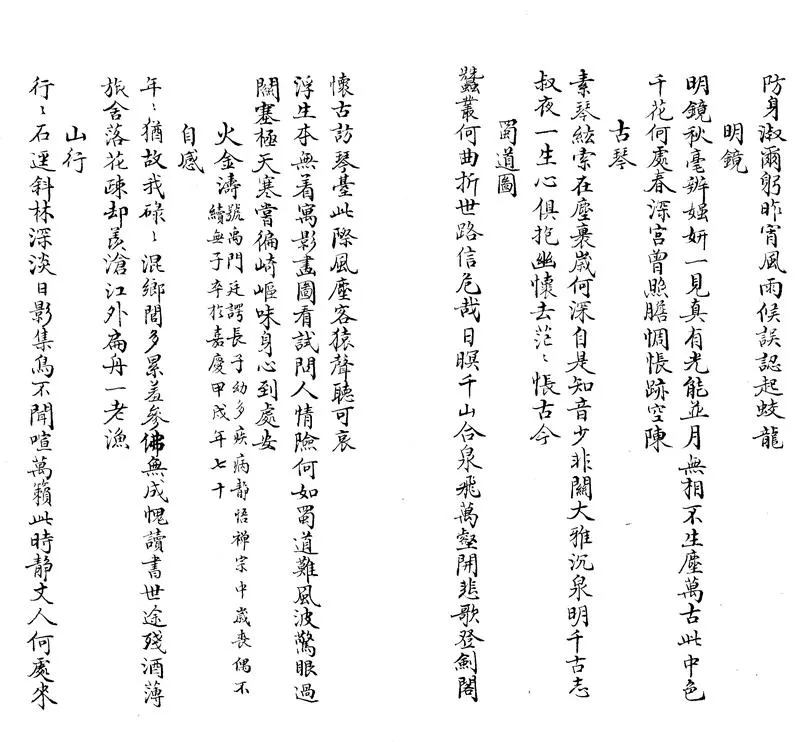 防身淑爾躬昨宵風雨候誤認起蛟龍
明鏡
明鏡秋毫辨媸妍一見真有光能並月無相不生塵萬古此中色
千花何處春深宮曾照膽惆悵跡空陳
古琴
素琴絃索在塵裏歲何深自是知音少非關大雅沉泉明千古志
叔夜一生心俱抱幽懷去茫〻悵古今
蜀道圖
蠶叢何曲折世路信危哉日暝千山合泉飛萬壑開悲歌登劍閣
懷古訪琴臺此際風塵客猿聲聽可哀
浮生本無着寓影畫圖看試問人情險何如蜀道難風波驚眼過
關塞極天寒嘗徧崎嶇味身心到處安
火金濤號禹門廷諤長子幼多疾病靜悟禪宗中歲喪偶不
續無子卒於嘉慶甲戌年七十
自感
年〻猶故我碌〻混鄉閭多累羞參佛無成愧讀書世途殘酒薄
旅舍落花疎却羨滄江外扁舟一老漁
山行
行〻石逕斜林深淡日影集鳥不聞喧萬籟此時靜丈人何處來